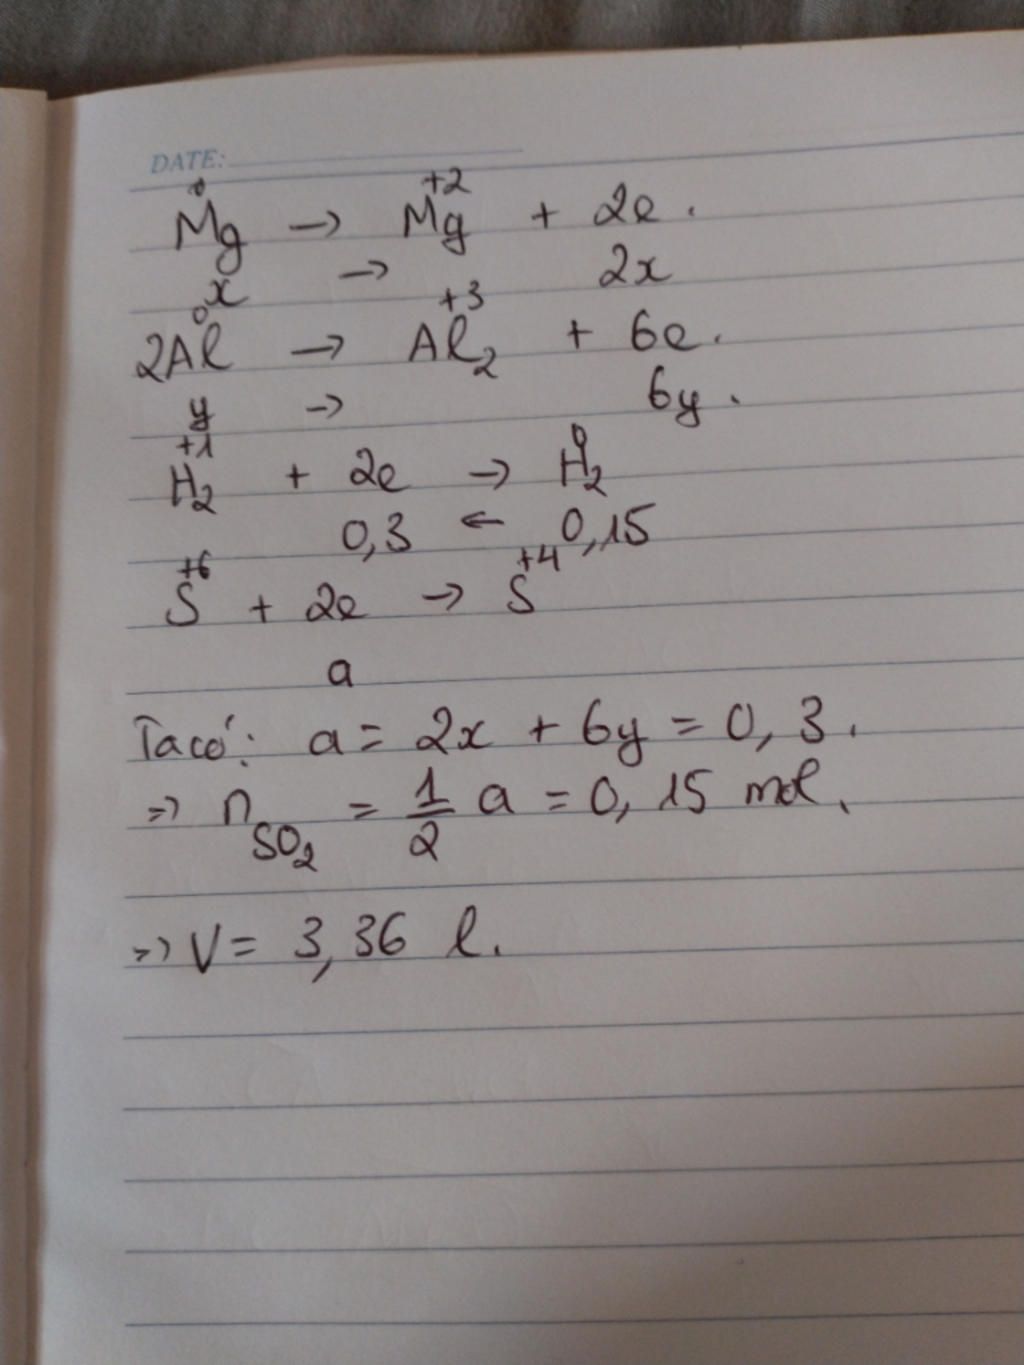 DATE:
0 +2
Mg → Mg + 2e.
x → 2x
0 +3
2Al → Al₂ + 6e.
y → 6y.
+1 0
H₂ + 2e → H₂
0,3 ← 0,15
+6 +4
S + 2e → S
a
Ta có: a = 2x + 6y = 0,3.
=> n_SO₂ = 1/2 a = 0,15 mol.
=> V = 3,36 l.